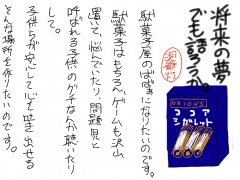 将来の夢
でも語ろうか。
駄菓子屋のばばぁになりたいのです。
駄菓子はもちろんゲームも沢山
置いて、悩んでいたり、問題児と
呼ばれる子供のグチなんか聴いたり
して。
子供らが安心して心を吐き出せる
そんな場所を作りたいのです。
ORION'S
ココア
シガレット